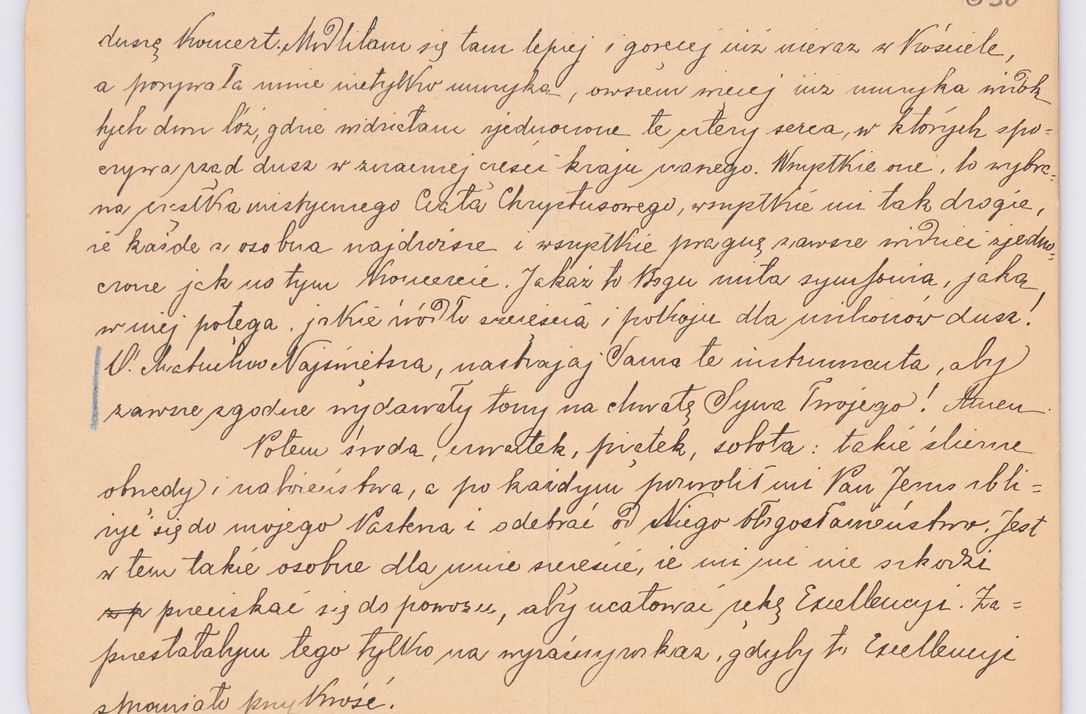 duszę Koncert. Modliłam się tam lepiej i goręcej niż nieraz w Kościele,
a porywała mnie nietylko muzyka, owszem więcej niż muzyka widok
tych dwu lóż, gdzie widziałam zjednoczone te cztery serca, w których spo-
czywa rząd dusz w znacznej części kraju naszego. Wszystkie one, to wybra-
na cząstka mistycznego Ciała Chrystusowego, wszystkie mi tak drogie,
że każde z osobna najdroższe i wszystkie pragnę zawsze widzieć zjedno-
czone jak na tym Koncercie. Jakaż to Bogu miła symfonia, jaka
w niej potęga, jakie źródło szczęścia i pokoju dla milionów dusz!
O! Matuchno Najświętsza, nastrajaj Sama te instrumenta, aby
zawsze zgodne wydawały tony na chwałę Syna Twojego! Amen.
Potem środa, czwartek, piątek, sobota: takie śliczne
obrzędy i nabożeństwa, a po każdym pozwolił mi Pan Jezus zbli-
żyć się do mojego Pasterza i odebrać od Niego błogosławieństwo. Jest
w tem takie osobne dla mnie szczęście, że mi już nie szkodzi
przeciskać się do powozu, aby ucałować rękę Excellencyi. Za-
przestałabym tego tylko na wyraźny rozkaz, gdyby to Excellencyi
sprawiało przykrość.